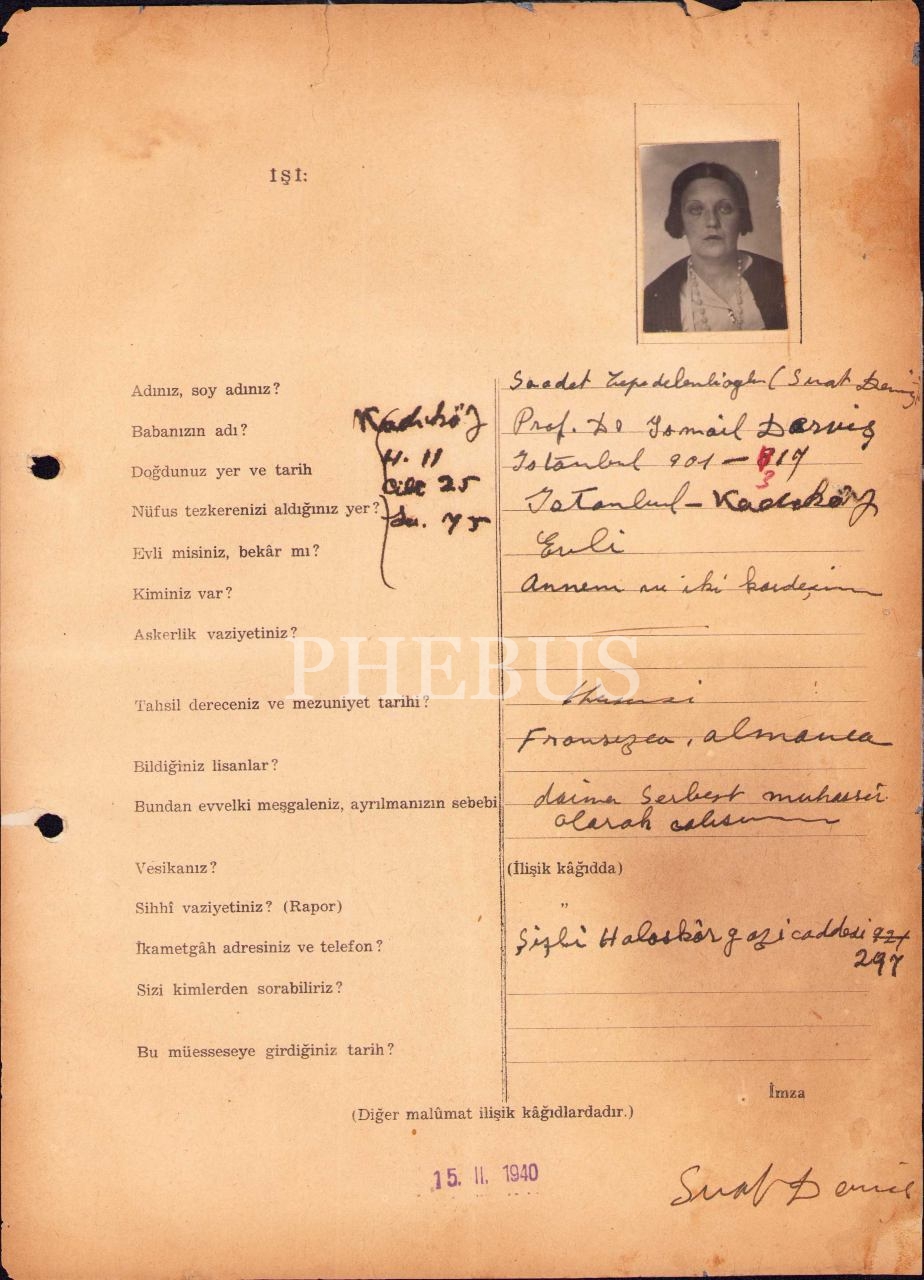 İŞİ:
Adınız, soy adınız? Saadet Tepedelenlioğlu (Suat Derviş
Babanızın adı? Prof. Dr İsmail Derviş
Kadıköy
Doğdunuz yer ve tarih İstanbul 901 - 317
H. 11
Cilt 25
Nüfus tezkerenizi aldığınız yer? İstanbul - Kadıköy
Sa. 75
Evli misiniz, bekâr mı? Evli
Kiminiz var? Annem ve iki kardeşim
Askerlik vaziyetiniz?
PHEBUS
Tahsil dereceniz ve mezuniyet tarihi? Hususi
Bildiğiniz lisanlar? Fransızca, almanca
Bundan evvelki meşgaleniz, ayrılmanızın sebebi daima Serbest muharrir
olarak
Vesikanız? (İlişik kâğıdda)
Sihhî vaziyetiniz? (Rapor) "
İkametgâh adresiniz ve telefon? Şişli Halaskâr gazi caddesi
297
Sizi kimlerden sorabiliriz?
Bu müesseseye girdiğiniz tarih?
İmza
(Diğer malûmat ilişik kâğıdlardadır.)
15. II. 1940
Suat Derviş